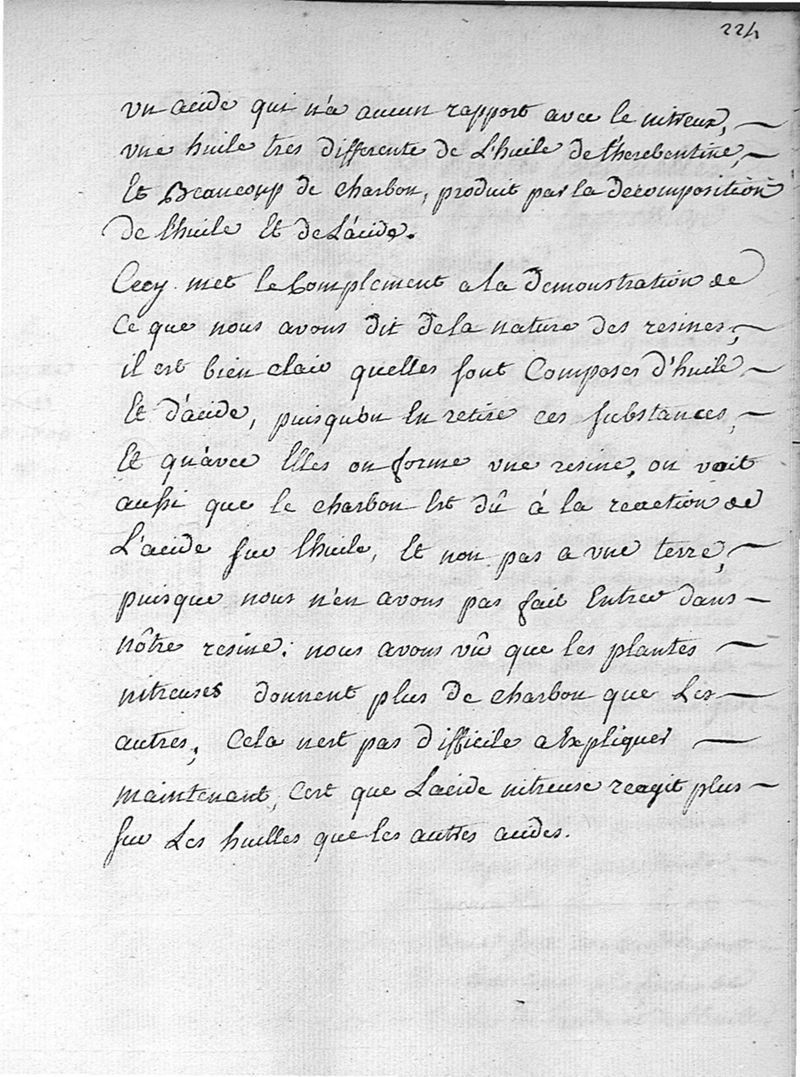 224
un acide qui n'a aucun rapport avec le nitreux, —
une huile tres differente de L'huile de therebentine, —
Et Beaucoup de charbon, produit par la decomposition
de l'huile Et de L'acide.
Cecy met le Complement a la demonstration de
Ce que nous avons dit de la nature des resines, —
il est bien clair quelles sont Composés d'huile —
Et d'acide, puisqu'on En retire ces substances, —
Et qu'avec Elles on forme une resine, on voit
aussi que le charbon Est dû à la reaction de
L'acide sur l'huile, Et non pas a une terre, —
puisque nous n'en avons pas fait Entrer dans —
nôtre resine; nous avons vû que les plantes —
nitreuses donnent plus de charbon que Les —
autres, Cela n'est pas difficile a Expliquer —
maintenant, C'est que L'acide nitreuse reagit plus —
sur Les huilles que les autres acides.